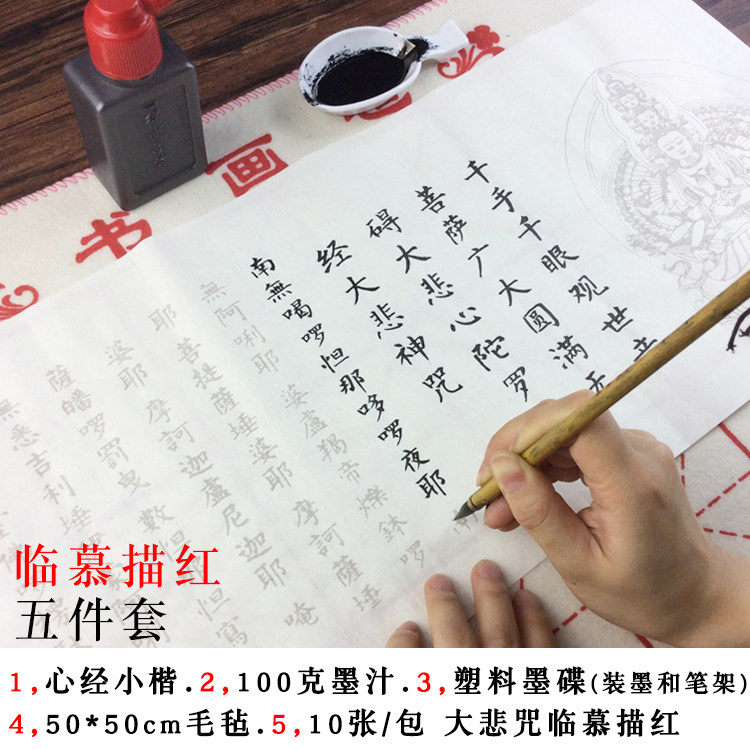 书 画
千手千眼观世音
菩萨广大圆满无
碍大悲心陀罗
经大悲神咒
南無喝啰怛那哆啰夜耶
無阿唎耶 婆盧羯帝爍鉢啰
耶菩提薩埵婆耶摩訶薩埵
婆耶摩訶迦盧尼迦耶 唵
薩皤啰罰曳數怛
無悉吉利埵
临慕描红
五件套
1,心经小楷.2,100克墨汁.3,塑料墨碟(装墨和笔架)
4,50*50cm毛毡.5,10张/包 大悲咒临慕描红